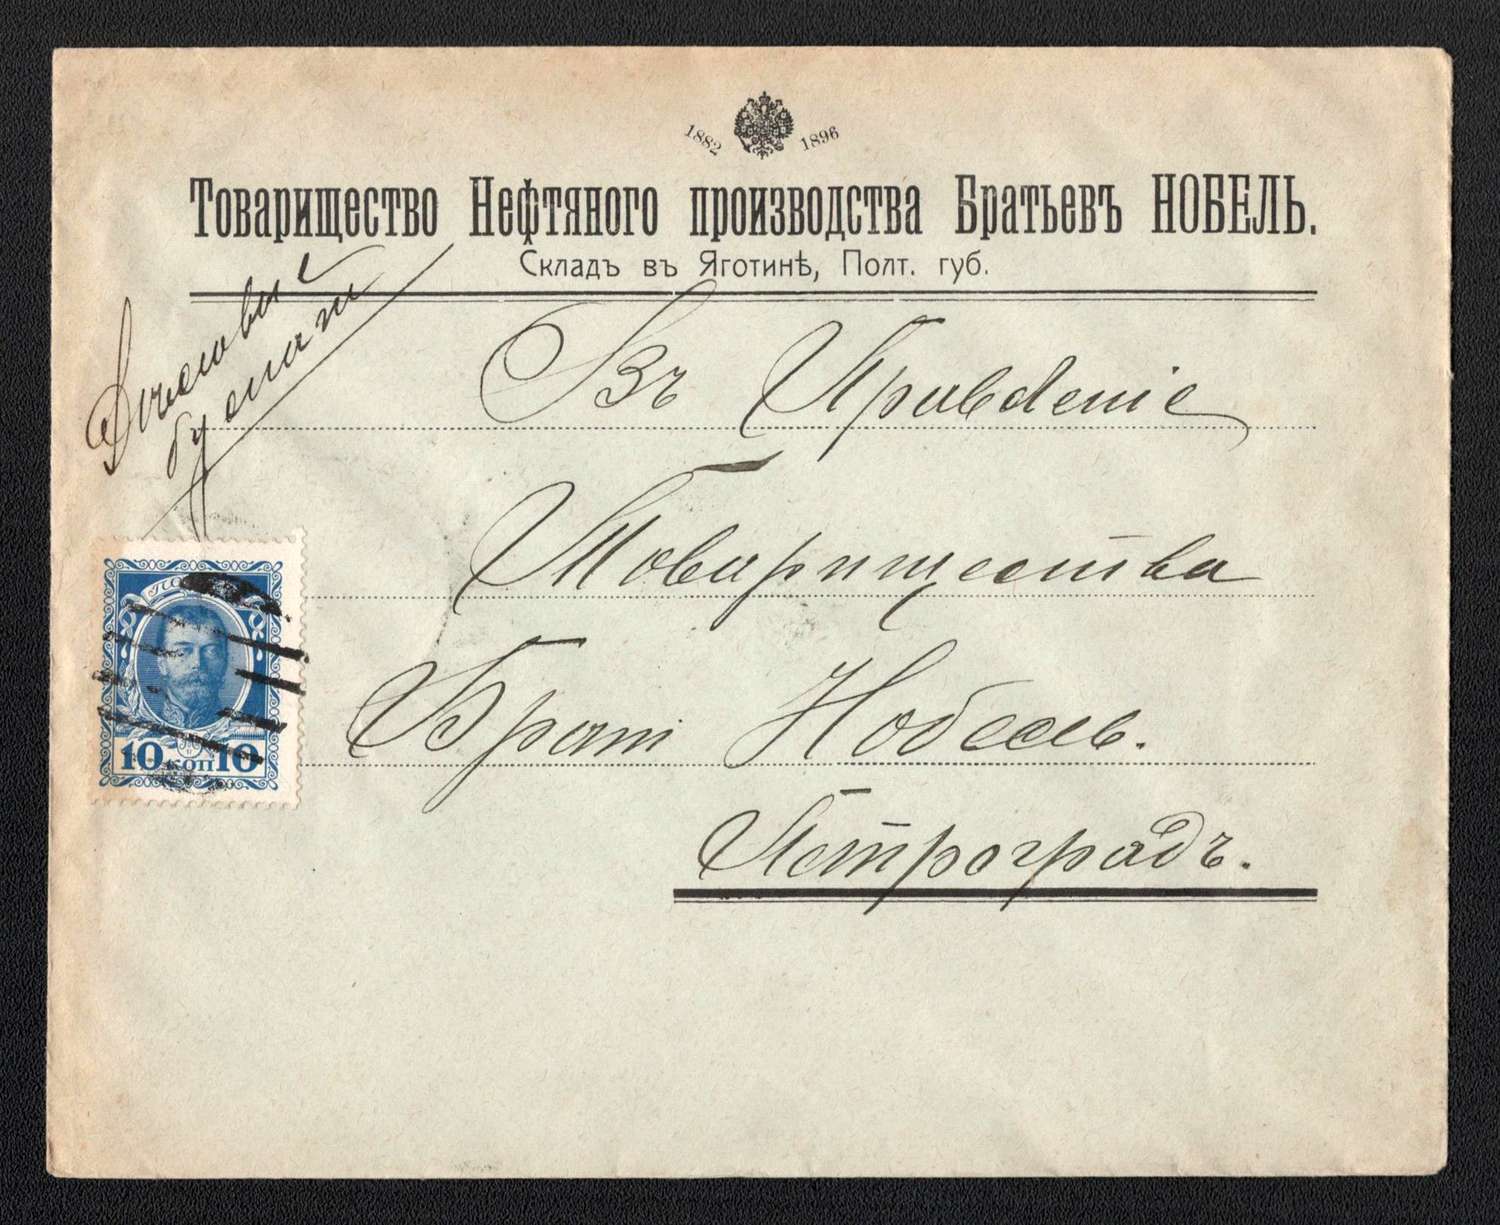 1882 1896
Товарищество Нефтяного производства Братьевъ НОБЕЛЬ.
Складъ въ Яготинѣ, Полт. губ.
Въ Правленіе
Товарищества
Брат Нобель.
Петроградъ.
10 КОП 10